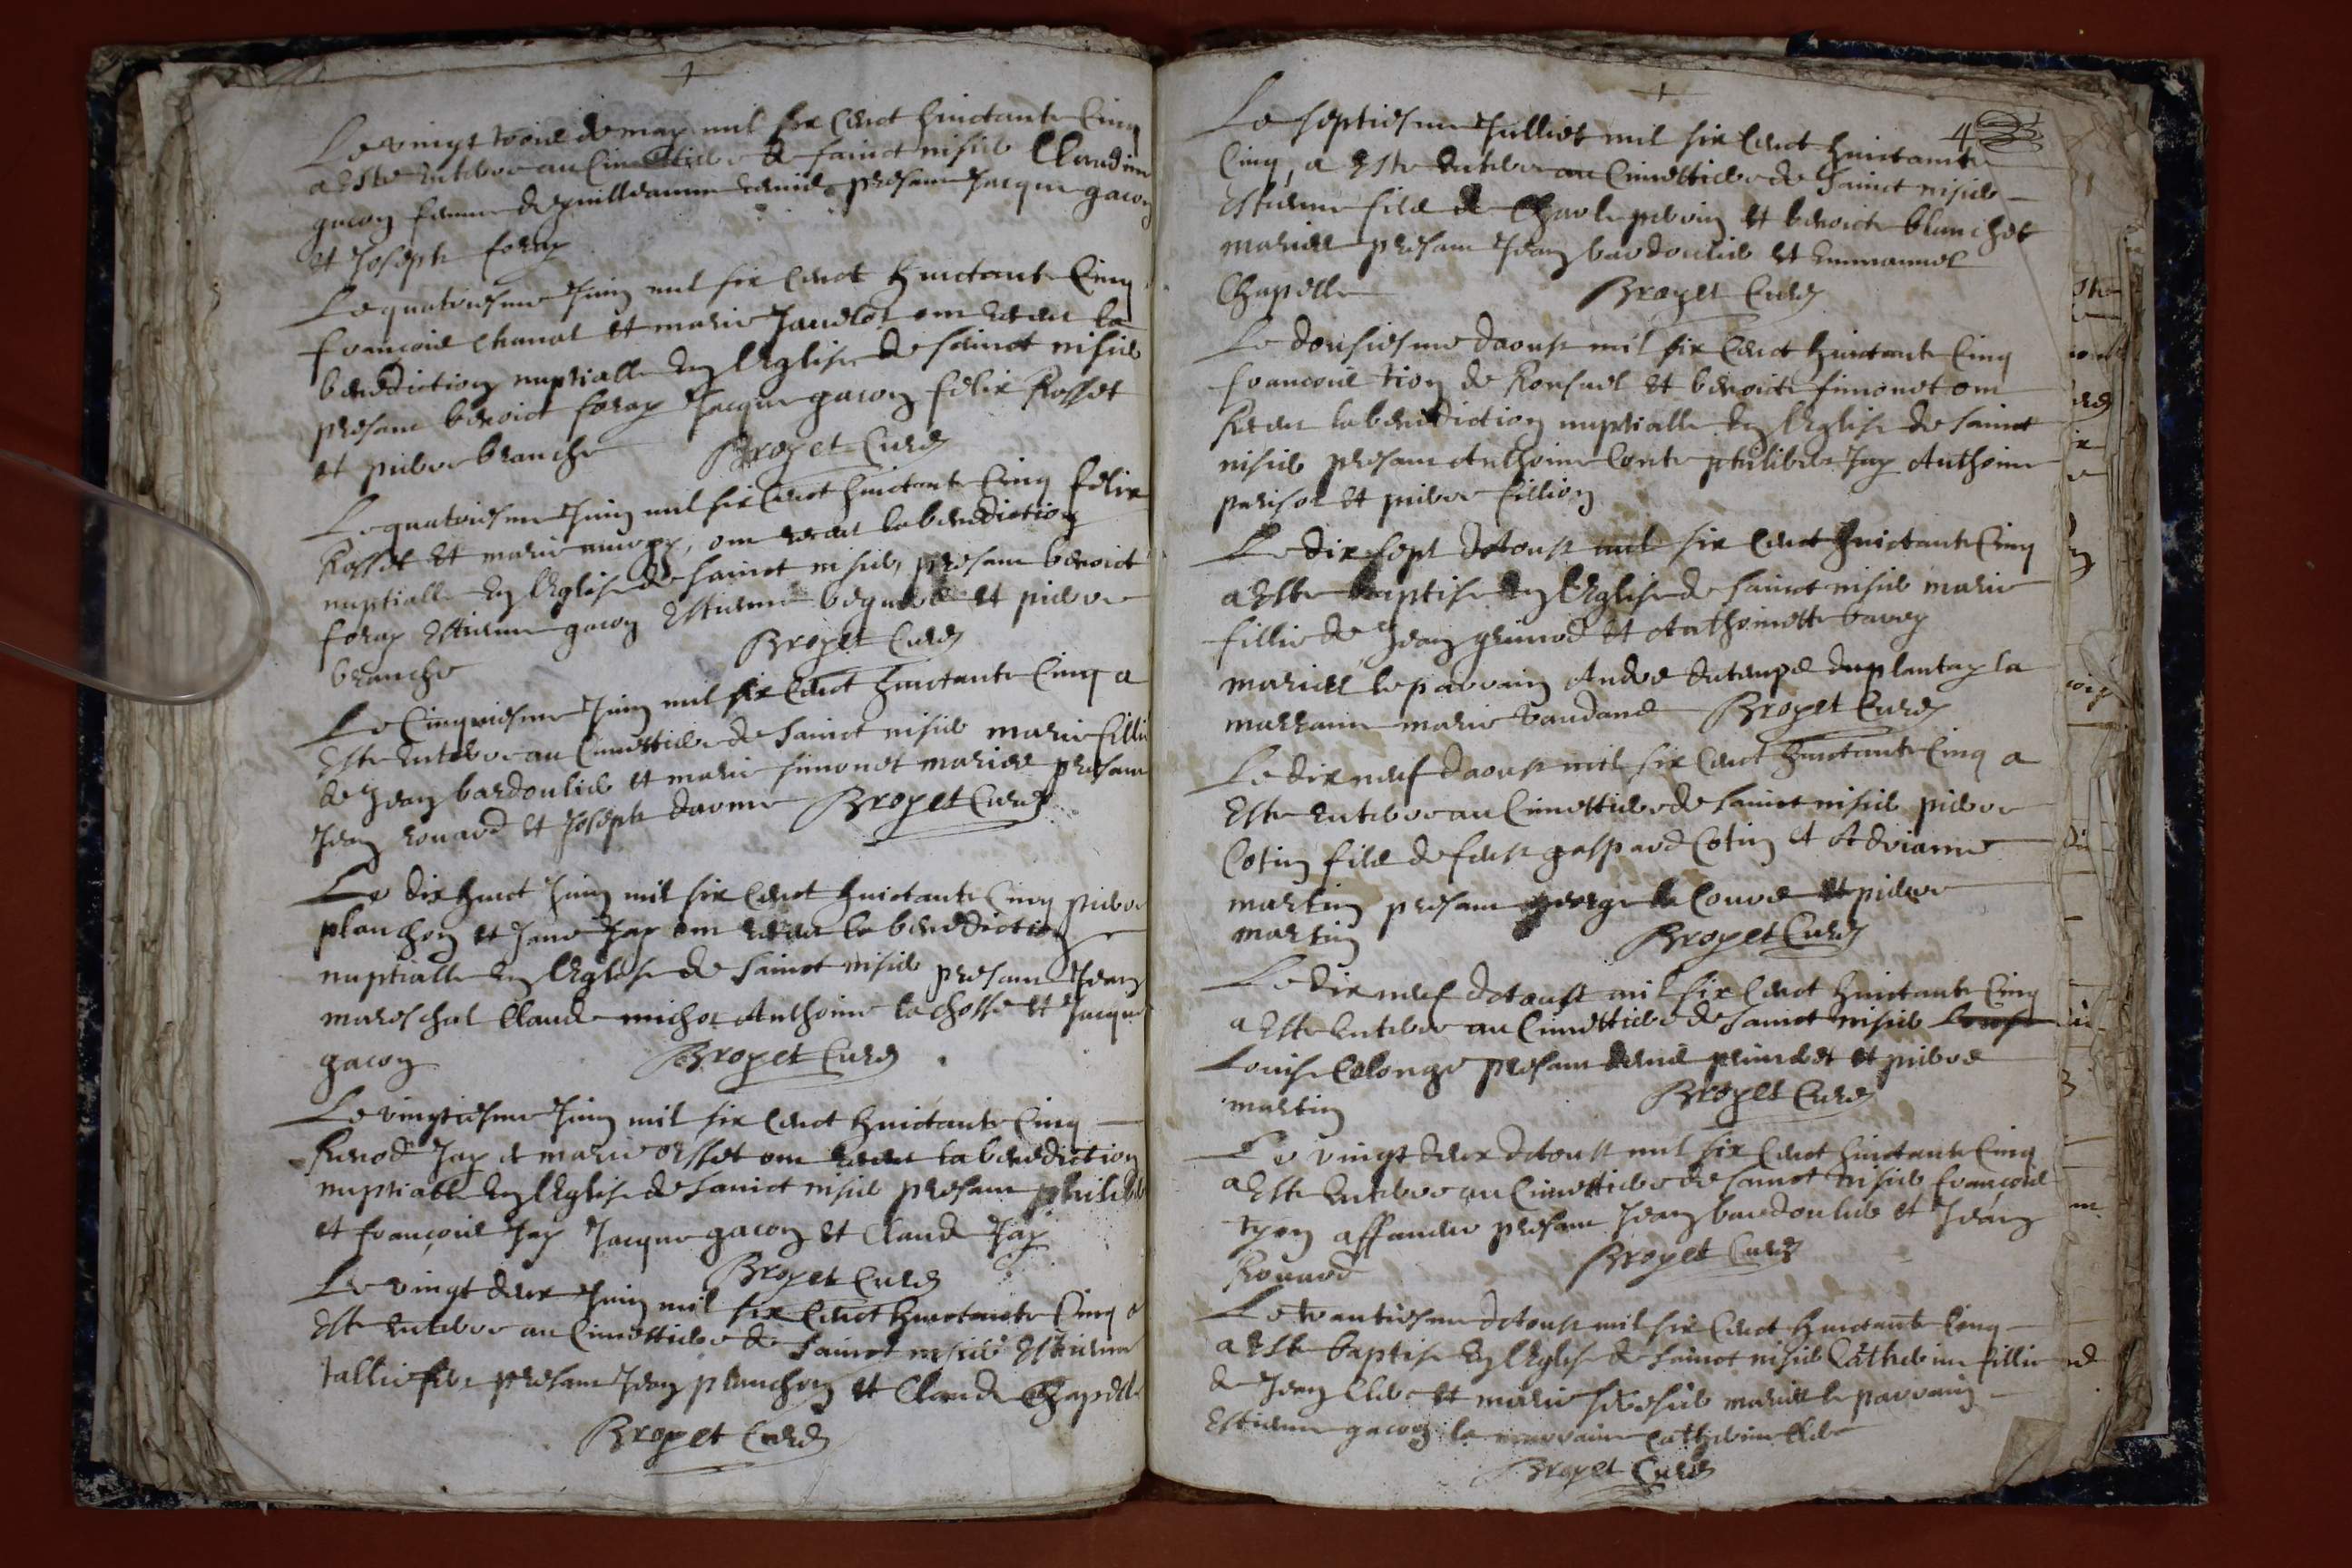 Le vingt trois de may mil six cent huictante cinq
a este enterre au cimettiere de sainct nisier Claudine
gacon femme de guilleaume present Jacque gacon
et Joseph foray
Le quatriesme Juin mil six cent huictante cinq
francois chanal et marie Jandot ont receu la
benediction nuptialle en leglise de sainct nisier
present benoict foray Jacque gacon felix Rosset
et pierre branche Broyet Cure
Le quatriesme Juin mil six cent huictante cinq felix
Rosset et marie ont receu la benediction
nuptialle en leglise de sainct nisier, present benoict
foray estienne gacon estienne et pierre
branche Broyet Cure
Le cinquiesme Juin mil six cent huictante cinq a
este enterre au cimettiere de sainct nisier marie fillie
de Jean bardoulier et marie simonet maries present
Jean rouard et Joseph darme Broyet Cure
Le dix huict Juin mil six cent huictante cinq pierre
planchon et Jane Jay ont receu la benediction
nuptialle en leglise de sainct nisier present Jean
mareschal Claude michot Anthoine la chosse et Jacque
gacon Broyet Cure
Le vingtiesme Juin mil six cent huictante cinq
Jay et marie ont receu la benediction
nuptialle en leglise de sainct nisier present philiber
et francois Jay Jacque gacon et Claude Jay
Broyet Cure
Le vingt deux Juin mil six cent huictante cinq a
este enterre au cimettiere de sainct nisier estienne
present Jean planchon et Claude Chapelle
Broyet Cure
4
Le septiesme Julliet mil six cent huictante
cinq, a este enterre au cimettiere de sainct nisier
estienne fils de Charle perrin et benoicte blanchet
maries present Jean bardoulier et emmanuel
Chapelle Broyet Cure
Le dousiesme daoust mil six cent huictante cinq
francois tion de Ronsuel et benoicte simonet ont
Receu la benediction nuptialle en leglise de sainct
nisier present Anthoine Conte philiber Jay Anthoine
parisot et pierre fillion
Le dix sept daoust mil six cent huictante cinq
a este baptise en leglise de sainct nisier marie
fillie de Jean grimod et Anthoinette
maries le parrain Andre duplantay la
marraine marie vandane Broyet Cure
Le dix neuf daoust mil six cent huictante cinq a
este enterre au cimettiere de sainct nisier pierre
Cotin fils de feust gaspard Cotin et Adrianne
martin present george la Couve et pierre
martin Broyet Cure
Le dix neuf daoust mil six cent huictante cinq
a este enterre au cimettiere de sainct nisier
Louise Colonge present et pierre
martin Broyet Cure
Le vingt deux daoust mil six cent huictante cinq
a este enterre au cimettiere de sainct nisier francois
tyon present Jean bardoulier et Jean
Rouard Broyet Cure
Le trantiesme daoust mil six cent huictante cinq
a este baptise en leglise de sainct nisier Catherine fillie
de Jean Clerc et marie maries le parrain
estienne gacon la marraine Catherine Clerc
Broyet Cure